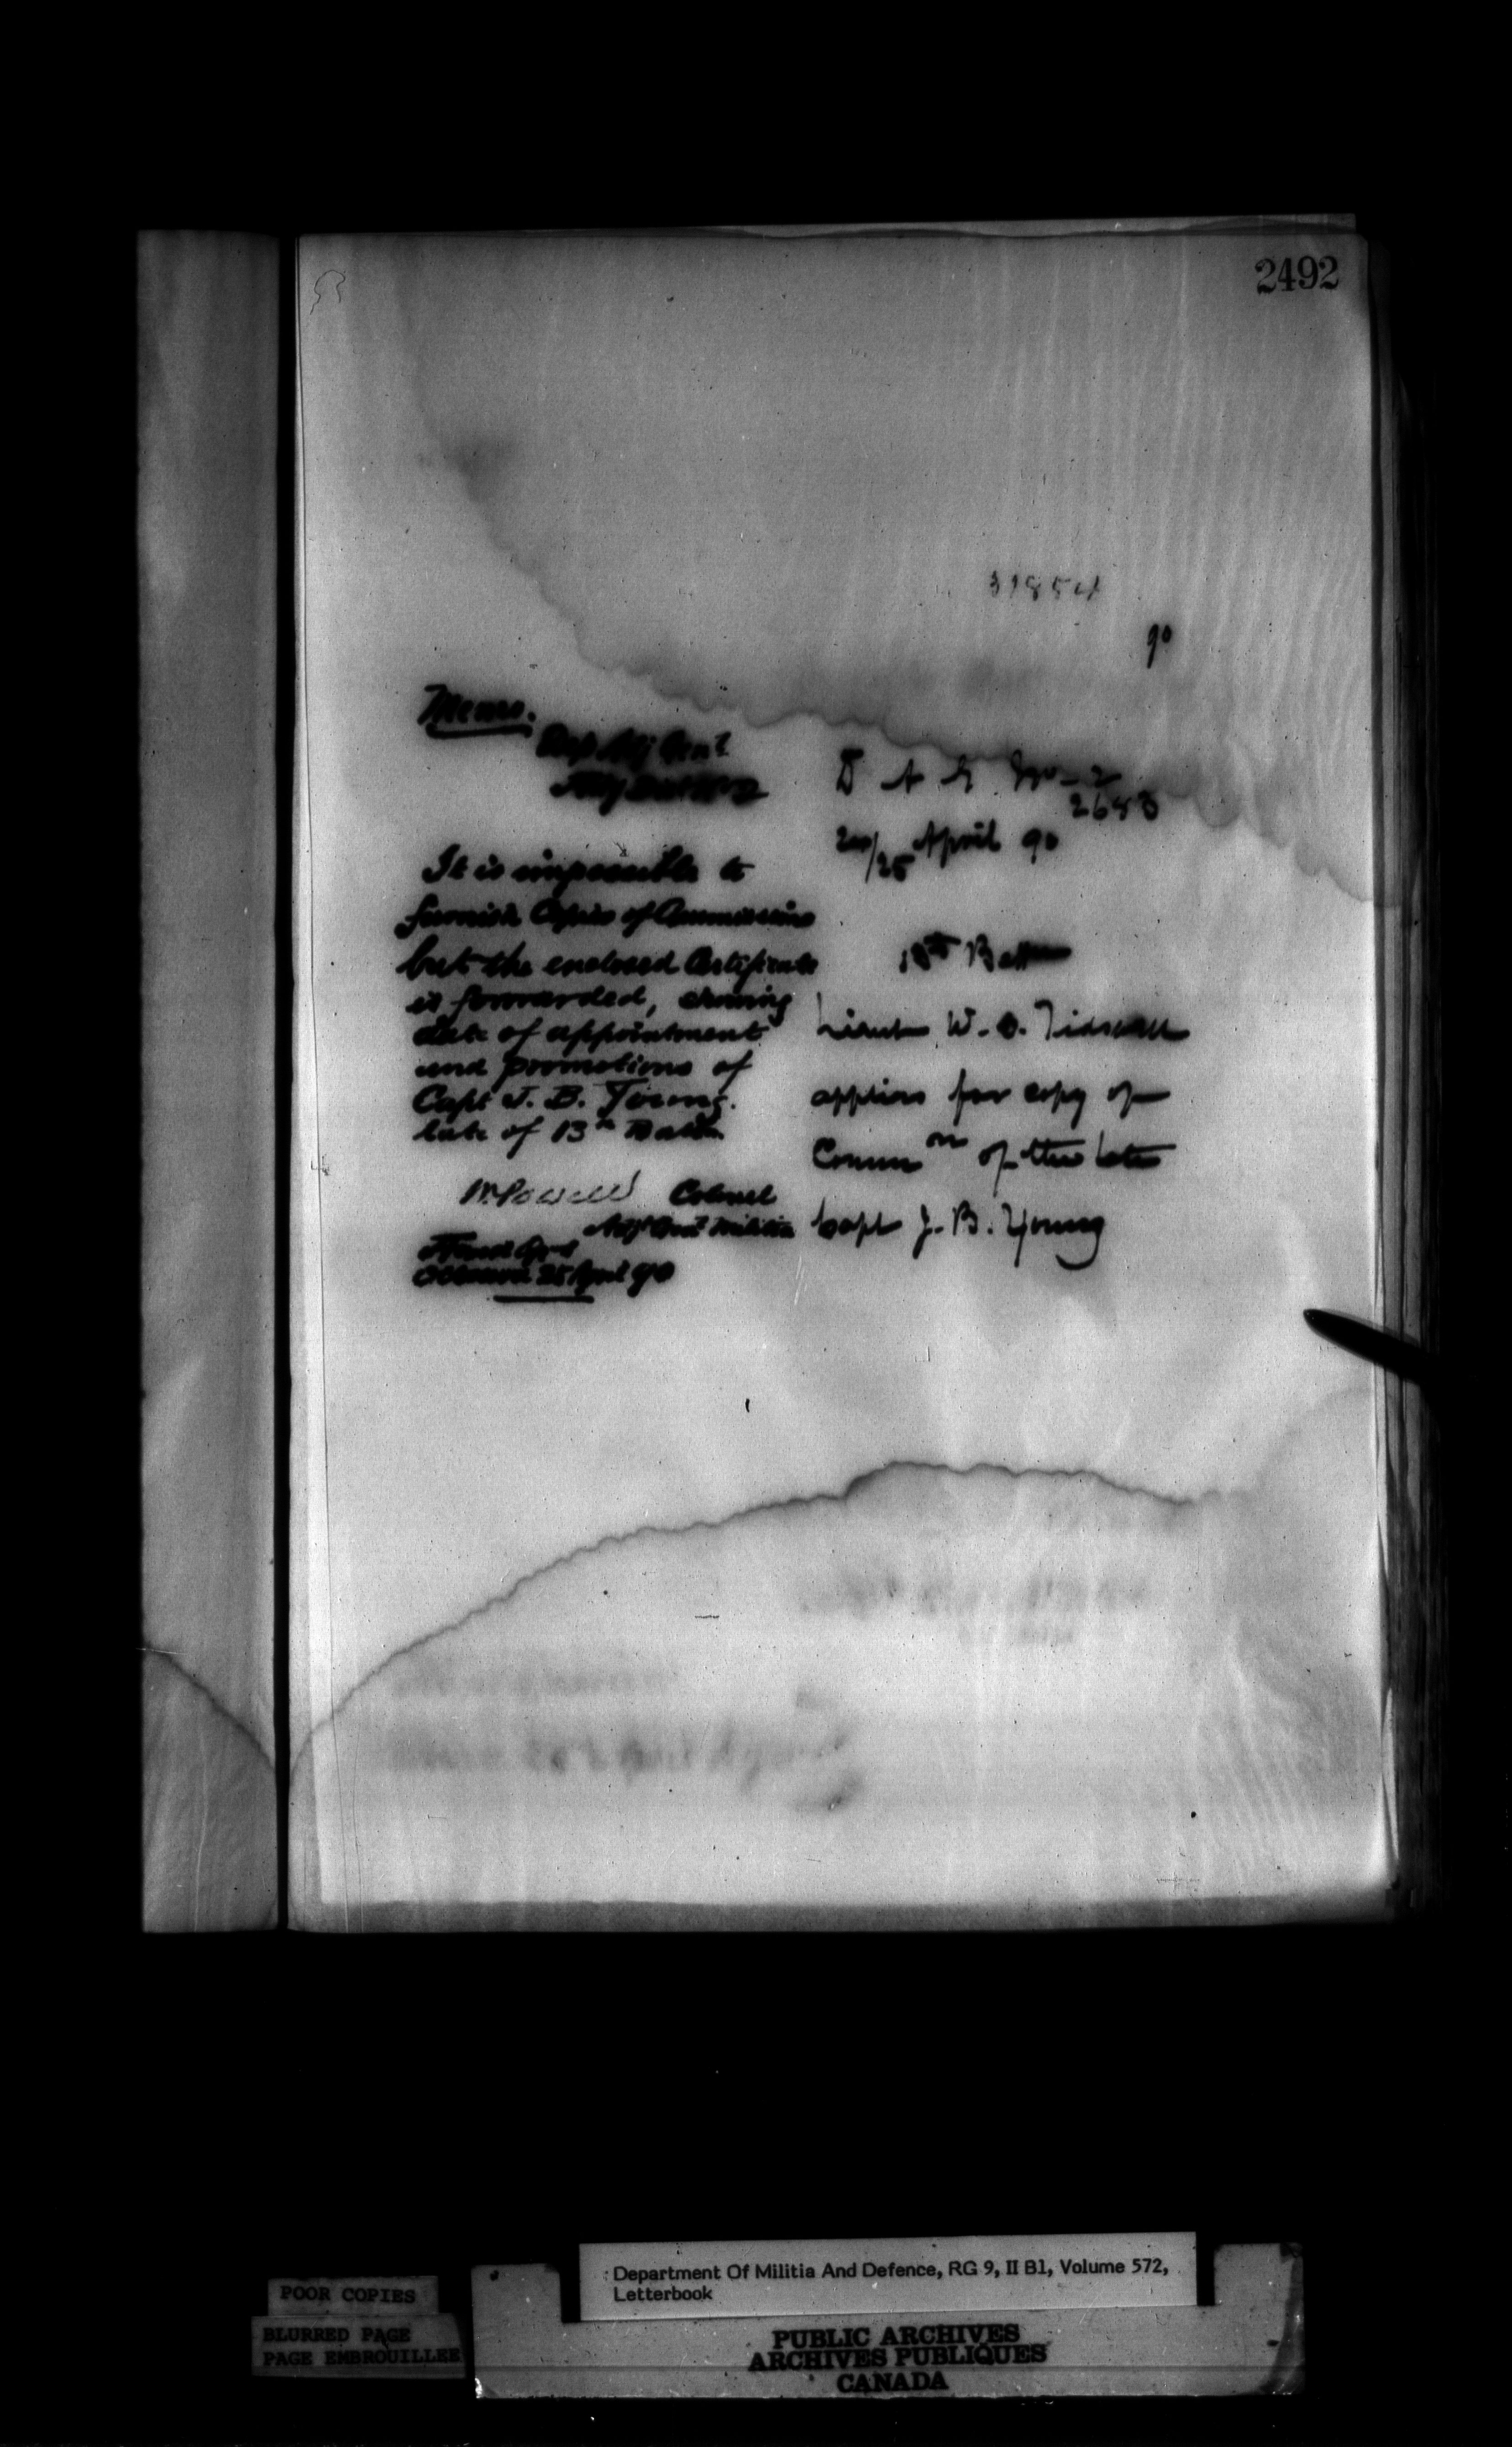 2492
31854
90
Memo.
Dep Adj Gen'l
It is impossible to
furnish Copies of Commissions
but the enclosed Certificate
is forwarded, showing
date of appointment
and promotions of
Capt J. B. Young.
late of 13th Battn.
W Powell Colonel
Adjt Genl Militia
Head Qrs
Ottawa 25 April 90
D A G No - 2
2643
20/25 April 90
13th Battn
Lieut W. O. Tidswell
applies for copy of
Commn of the late
Capt J. B. Young
POOR COPIES
BLURRED PAGE
PAGE EMBROUILLEE
Department Of Militia And Defence, RG 9, II B1, Volume 572,
Letterbook
PUBLIC ARCHIVES
ARCHIVES PUBLIQUES
CANADA